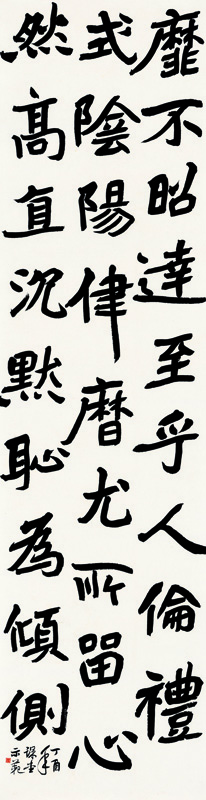 靡不昭達至乎人倫禮
式陰陽律曆尤所留心
然高直沉默恥為傾側
丁酉年
示範